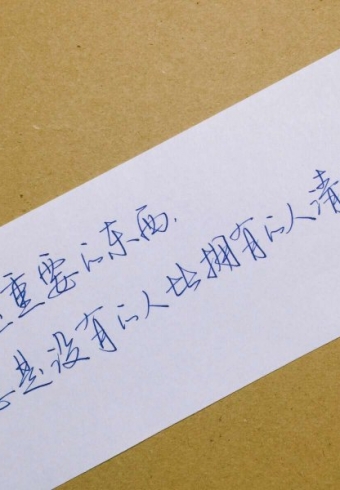 重要的东西.
是没有的人比拥有的人清